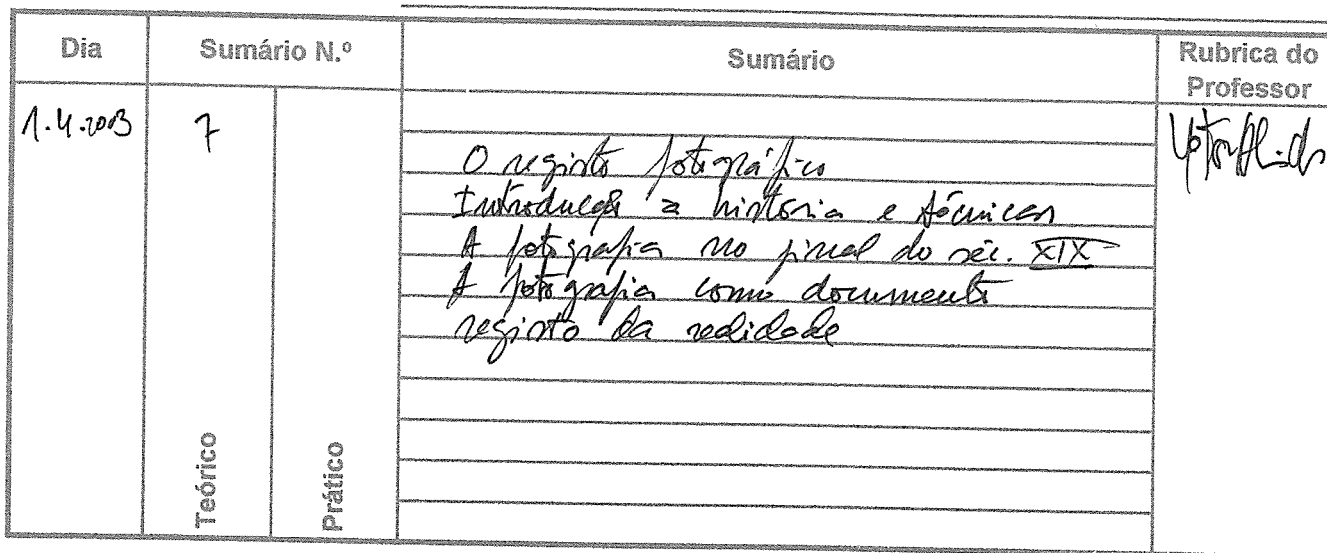 Dia Sumário N.º Sumário Rubrica do Professor
1.4.2003 7
O registo fotográfico
Introdução a história e técnicas
A fotografia no final do séc. XIX
A fotografia como documento
registo da realidade
Teórico Prático